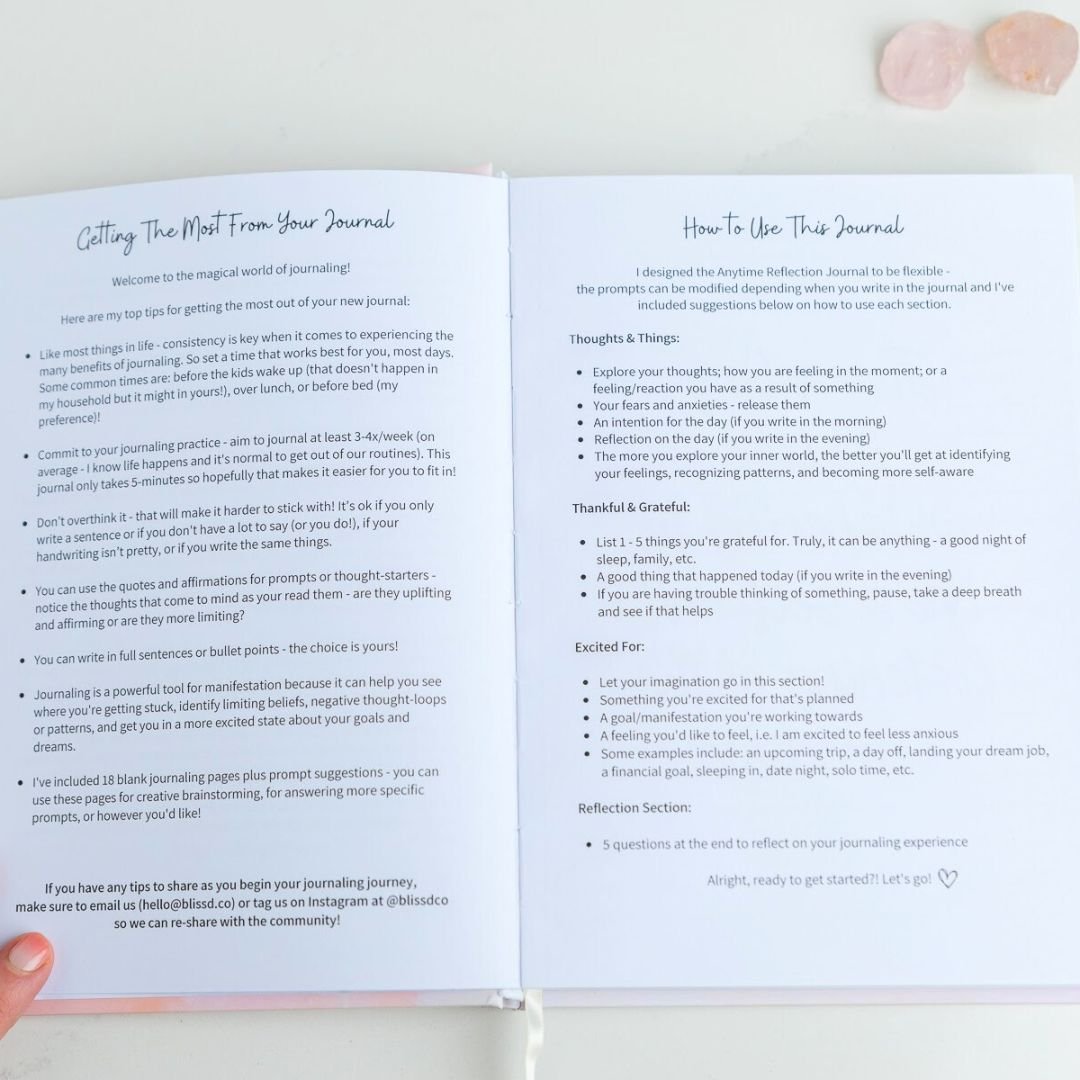 Getting The Most From Your Journal
Welcome to the magical world of journaling!
Here are my top tips for getting the most out of your new journal:
• Like most things in life - consistency is key when it comes to experiencing the
many benefits of journaling. So set a time that works best for you, most days.
Some common times are: before the kids wake up (that doesn't happen in
my household but it might in yours!), over lunch, or before bed (my
preference)!
• Commit to your journaling practice - aim to journal at least 3-4x/week (on
average - I know life happens and it's normal to get out of our routines). This
journal only takes 5-minutes so hopefully that makes it easier for you to fit in!
• Don't overthink it - that will make it harder to stick with! It's ok if you only
write a sentence or if you don't have a lot to say (or you do!), if your
handwriting isn't pretty, or if you write the same things.
• You can use the quotes and affirmations for prompts or thought-starters -
notice the thoughts that come to mind as your read them - are they uplifting
and affirming or are they more limiting?
• You can write in full sentences or bullet points - the choice is yours!
• Journaling is a powerful tool for manifestation because it can help you see
where you're getting stuck, identify limiting beliefs, negative thought-loops
or patterns, and get you in a more excited state about your goals and
dreams.
• I've included 18 blank journaling pages plus prompt suggestions - you can
use these pages for creative brainstorming, for answering more specific
prompts, or however you'd like!
If you have any tips to share as you begin your journaling journey,
make sure to email us (hello@blissd.co) or tag us on Instagram at @blissdco
so we can re-share with the community!
How To Use This Journal
I designed the Anytime Reflection Journal to be flexible -
the prompts can be modified depending when you write in the journal and I've
included suggestions below on how to use each section.
Thoughts & Things:
• Explore your thoughts; how you are feeling in the moment; or a
feeling/reaction you have as a result of something
• Your fears and anxieties - release them
• An intention for the day (if you write in the morning)
• Reflection on the day (if you write in the evening)
• The more you explore your inner world, the better you'll get at identifying
your feelings, recognizing patterns, and becoming more self-aware
Thankful & Grateful:
• List 1 - 5 things you're grateful for. Truly, it can be anything - a good night of
sleep, family, etc.
• A good thing that happened today (if you write in the evening)
• If you are having trouble thinking of something, pause, take a deep breath
and see if that helps
Excited For:
• Let your imagination go in this section!
• Something you're excited for that's planned
• A goal/manifestation you're working towards
• A feeling you'd like to feel, i.e. I am excited to feel less anxious
• Some examples include: an upcoming trip, a day off, landing your dream job,
a financial goal, sleeping in, date night, solo time, etc.
Reflection Section:
• 5 questions at the end to reflect on your journaling experience
Alright, ready to get started?! Let's go!